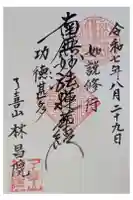 令和七年八月二十九日
如説修行
南無妙法蓮華経
功徳甚多
了喜山 林昌院